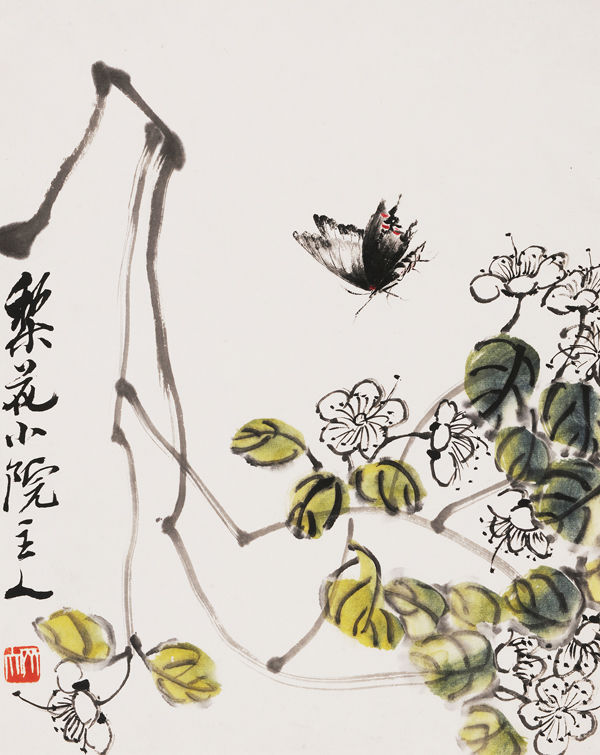 梨花小院主人